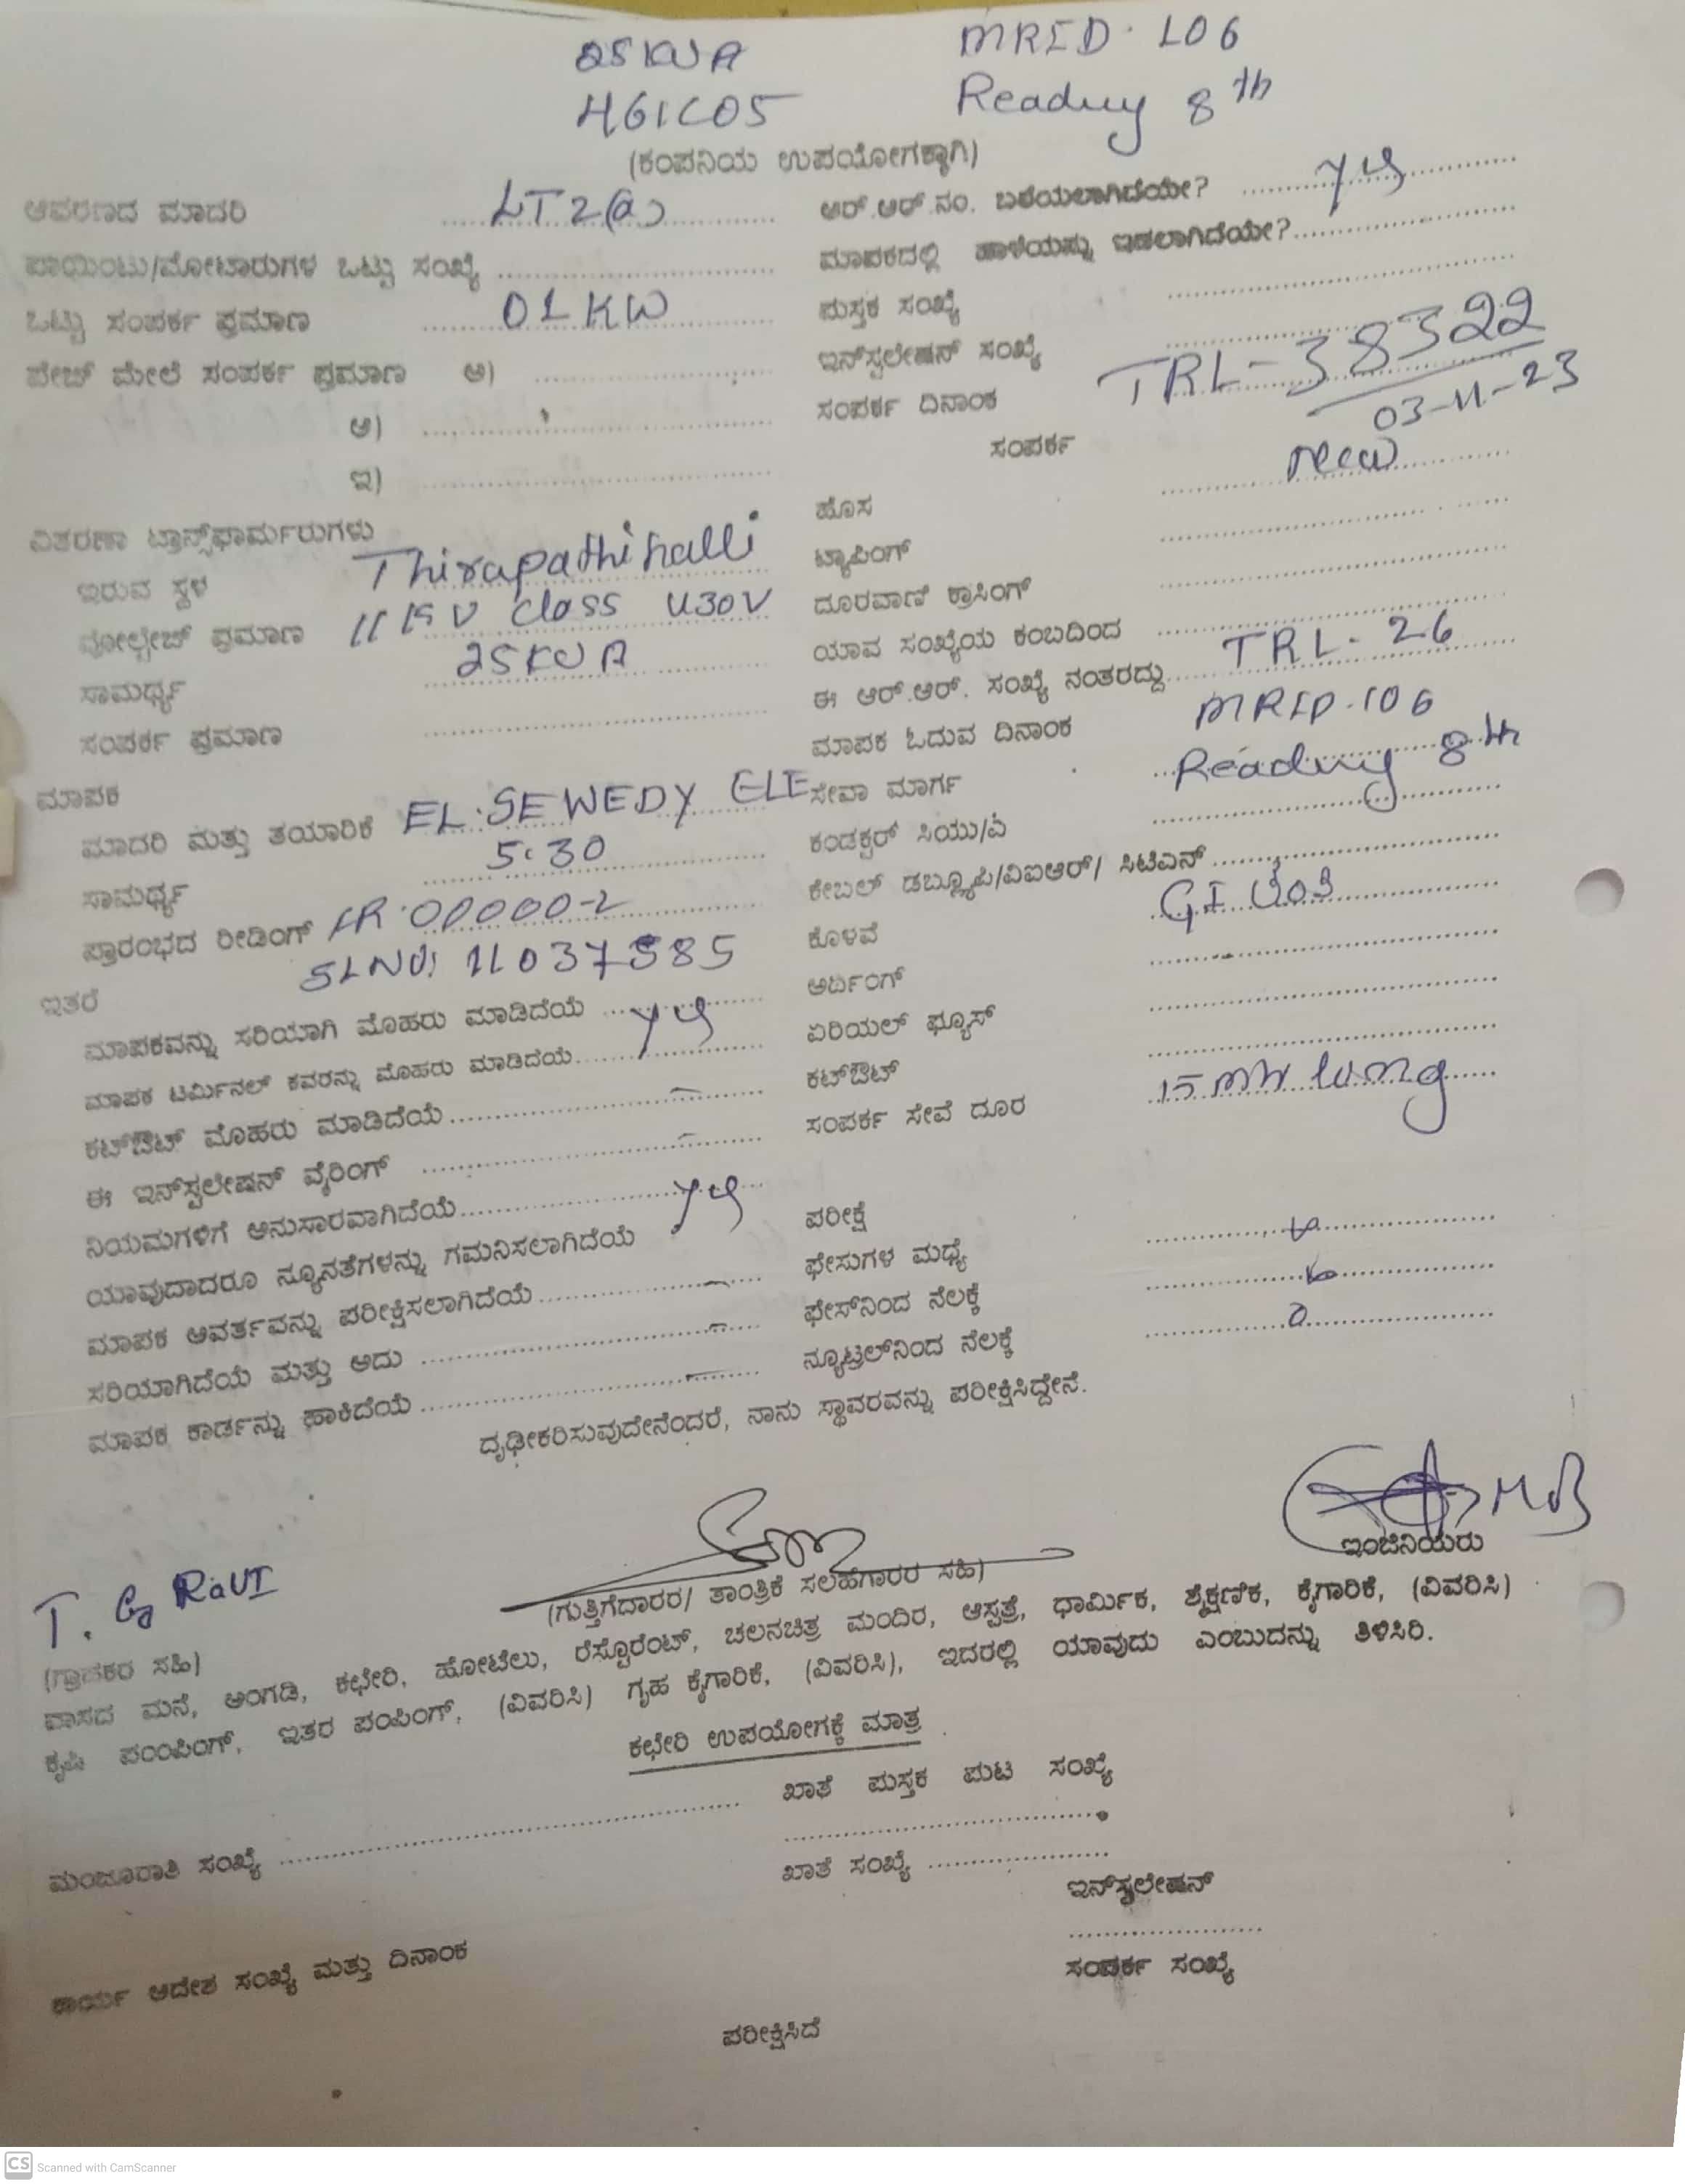 25KVA MRID. 106
HG1C05 Reading 8th
(ಕಂಪನಿಯ ಉಪಯೋಗಕ್ಕಾಗಿ)
ಆವರಣದ ಮಾದರಿ LT2(a)
ಪಾಯಿಂಟು/ಮೋಟಾರುಗಳ ಒಟ್ಟು ಸಂಖ್ಯೆ
ಒಟ್ಟು ಸಂಪರ್ಕ ಪ್ರಮಾಣ 01 KW
ಪೇಜ್ ಮೇಲೆ ಸಂಪರ್ಕ ಪ್ರಮಾಣ ಅ)
ಆ)
ಇ)
ವಿತರಣಾ ಟ್ರಾನ್ಸ್‌ಫಾರ್ಮರುಗಳು
ಇರುವ ಸ್ಥಳ Thirapathihalli
ವೋಲ್ಟೇಜ್ ಪ್ರಮಾಣ 11KV Class 430V
ಸಾಮರ್ಥ್ಯ 25KVA
ಸಂಪರ್ಕ ಪ್ರಮಾಣ
ಮಾಪಕ
ಮಾದರಿ ಮತ್ತು ತಯಾರಿಕೆ EL.SEWEDY ELE
ಸಾಮರ್ಥ್ಯ 5-30
ಪ್ರಾರಂಭದ ರೀಡಿಂಗ್ IR.00000-2
SLNO: 11037585
ಇತರೆ
ಮಾಪಕವನ್ನು ಸರಿಯಾಗಿ ಮೊಹರು ಮಾಡಿದೆಯೆ
ಮಾಪಕ ಟರ್ಮಿನಲ್ ಕವರನ್ನು ಮೊಹರು ಮಾಡಿದೆಯೆ yes
ಕಟ್‌ಔಟ್ ಮೊಹರು ಮಾಡಿದೆಯೆ
ಈ ಇನ್‌ಸ್ಟಲೇಷನ್ ವೈರಿಂಗ್
ನಿಯಮಗಳಿಗೆ ಅನುಸಾರವಾಗಿದೆಯೆ yes
ಯಾವುದಾದರೂ ನ್ಯೂನತೆಗಳನ್ನು ಗಮನಿಸಲಾಗಿದೆಯೆ
ಮಾಪಕ ಆವರ್ತವನ್ನು ಪರೀಕ್ಷಿಸಲಾಗಿದೆಯೆ
ಸರಿಯಾಗಿದೆಯೆ ಮತ್ತು ಅದು
ಮಾಪಕ ಕಾರ್ಡನ್ನು ಹಾಕಿದೆಯೆ
ಆರ್.ಆರ್.ನಂ. ಬರೆಯಲಾಗಿದೆಯೇ? yes
ಮಾಪಕದಲ್ಲಿ ಹಾಳೆಯನ್ನು ಇಡಲಾಗಿದೆಯೇ?
ಪುಸ್ತಕ ಸಂಖ್ಯೆ
ಇನ್‌ಸ್ಟಲೇಷನ್ ಸಂಖ್ಯೆ TRL-38322
ಸಂಪರ್ಕ ದಿನಾಂಕ 03-11-23
ಸಂಪರ್ಕ
ಹೊಸ new
ಟ್ಯಾಪಿಂಗ್
ದೂರವಾಣಿ ಕ್ರಾಸಿಂಗ್
ಯಾವ ಸಂಖ್ಯೆಯ ಕಂಬದಿಂದ
ಈ ಆರ್.ಆರ್. ಸಂಖ್ಯೆ ನಂತರದ್ದು TRL-26
ಮಾಪಕ ಓದುವ ದಿನಾಂಕ MRID.106
ಸೇವಾ ಮಾರ್ಗ Reading 8th
ಕಂಡಕ್ಟರ್ ಸಿಯು/ಎ
ಕೇಬಲ್ ಡಬ್ಲ್ಯೂಪಿ/ವಿಐಆರ್/ ಸಿಟಿಎನ್
ಕೊಳವೆ GI
ಅರ್ದಿಂಗ್
ಏರಿಯಲ್ ಫ್ಯೂಸ್
ಕಟ್‌ಔಟ್
ಸಂಪರ್ಕ ಸೇವೆ ದೂರ 15
ಪರೀಕ್ಷೆ
ಫೇಸುಗಳ ಮಧ್ಯೆ
ಫೇಸ್‌ನಿಂದ ನೆಲಕ್ಕೆ
ನ್ಯೂಟ್ರಲ್‌ನಿಂದ ನೆಲಕ್ಕೆ
ದೃಢೀಕರಿಸುವುದೇನೆಂದರೆ, ನಾನು ಸ್ಥಾವರವನ್ನು ಪರೀಕ್ಷಿಸಿದ್ದೇನೆ.
ಇಂಜಿನಿಯರು
T. G RaVI
(ಗ್ರಾಹಕರ ಸಹಿ) (ಗುತ್ತಿಗೆದಾರರ/ ತಾಂತ್ರಿಕೆ ಸಲಹೆಗಾರರ ಸಹಿ)
ವಾಸದ ಮನೆ, ಅಂಗಡಿ, ಕಛೇರಿ, ಹೋಟೆಲು, ರೆಸ್ಟೊರೆಂಟ್, ಚಲನಚಿತ್ರ ಮಂದಿರ, ಆಸ್ಪತ್ರೆ, ಧಾರ್ಮಿಕ, ಶೈಕ್ಷಣಿಕ, ಕೈಗಾರಿಕೆ, (ವಿವರಿಸಿ)
ಕೃಷಿ ಪಂಂಪಿಂಗ್, ಇತರ ಪಂಪಿಂಗ್, (ವಿವರಿಸಿ) ಗೃಹ ಕೈಗಾರಿಕೆ, (ವಿವರಿಸಿ), ಇದರಲ್ಲಿ ಯಾವುದು ಎಂಬುದನ್ನು ತಿಳಿಸಿರಿ.
ಕಛೇರಿ ಉಪಯೋಗಕ್ಕೆ ಮಾತ್ರ
ಖಾತೆ ಪುಸ್ತಕ ಪುಟ ಸಂಖ್ಯೆ
ಮಂಜೂರಾತಿ ಸಂಖ್ಯೆ
ಖಾತೆ ಸಂಖ್ಯೆ
ಇನ್‌ಸ್ಟಲೇಷನ್
ಕಾರ್ಯ ಆದೇಶ ಸಂಖ್ಯೆ ಮತ್ತು ದಿನಾಂಕ
ಸಂಪರ್ಕ ಸಂಖ್ಯೆ
ಪರೀಕ್ಷಿಸಿದೆ
CS Scanned with CamScanner